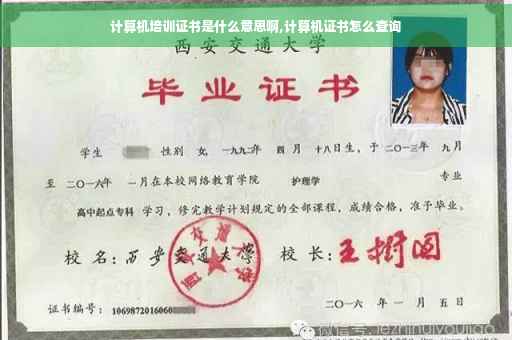 计算机培训证书是什么意思啊,计算机证书怎么查询
西安交通大学
毕业证书
学生 性别 女, 一九九二年 四月 十八日生, 于 二〇一三年 九月
至 二〇一六年 一月在本校网络教育学院 护理学 专业
高中起点专科 学习, 修完教学计划规定的全部课程, 成绩合格, 准予毕业。
校名: 西安交通大学 校长: 王树国
西安交通大学
证书编号: 1069872016060
二〇一六年 一月 五日
微信号: jiezhihuiyoujiao